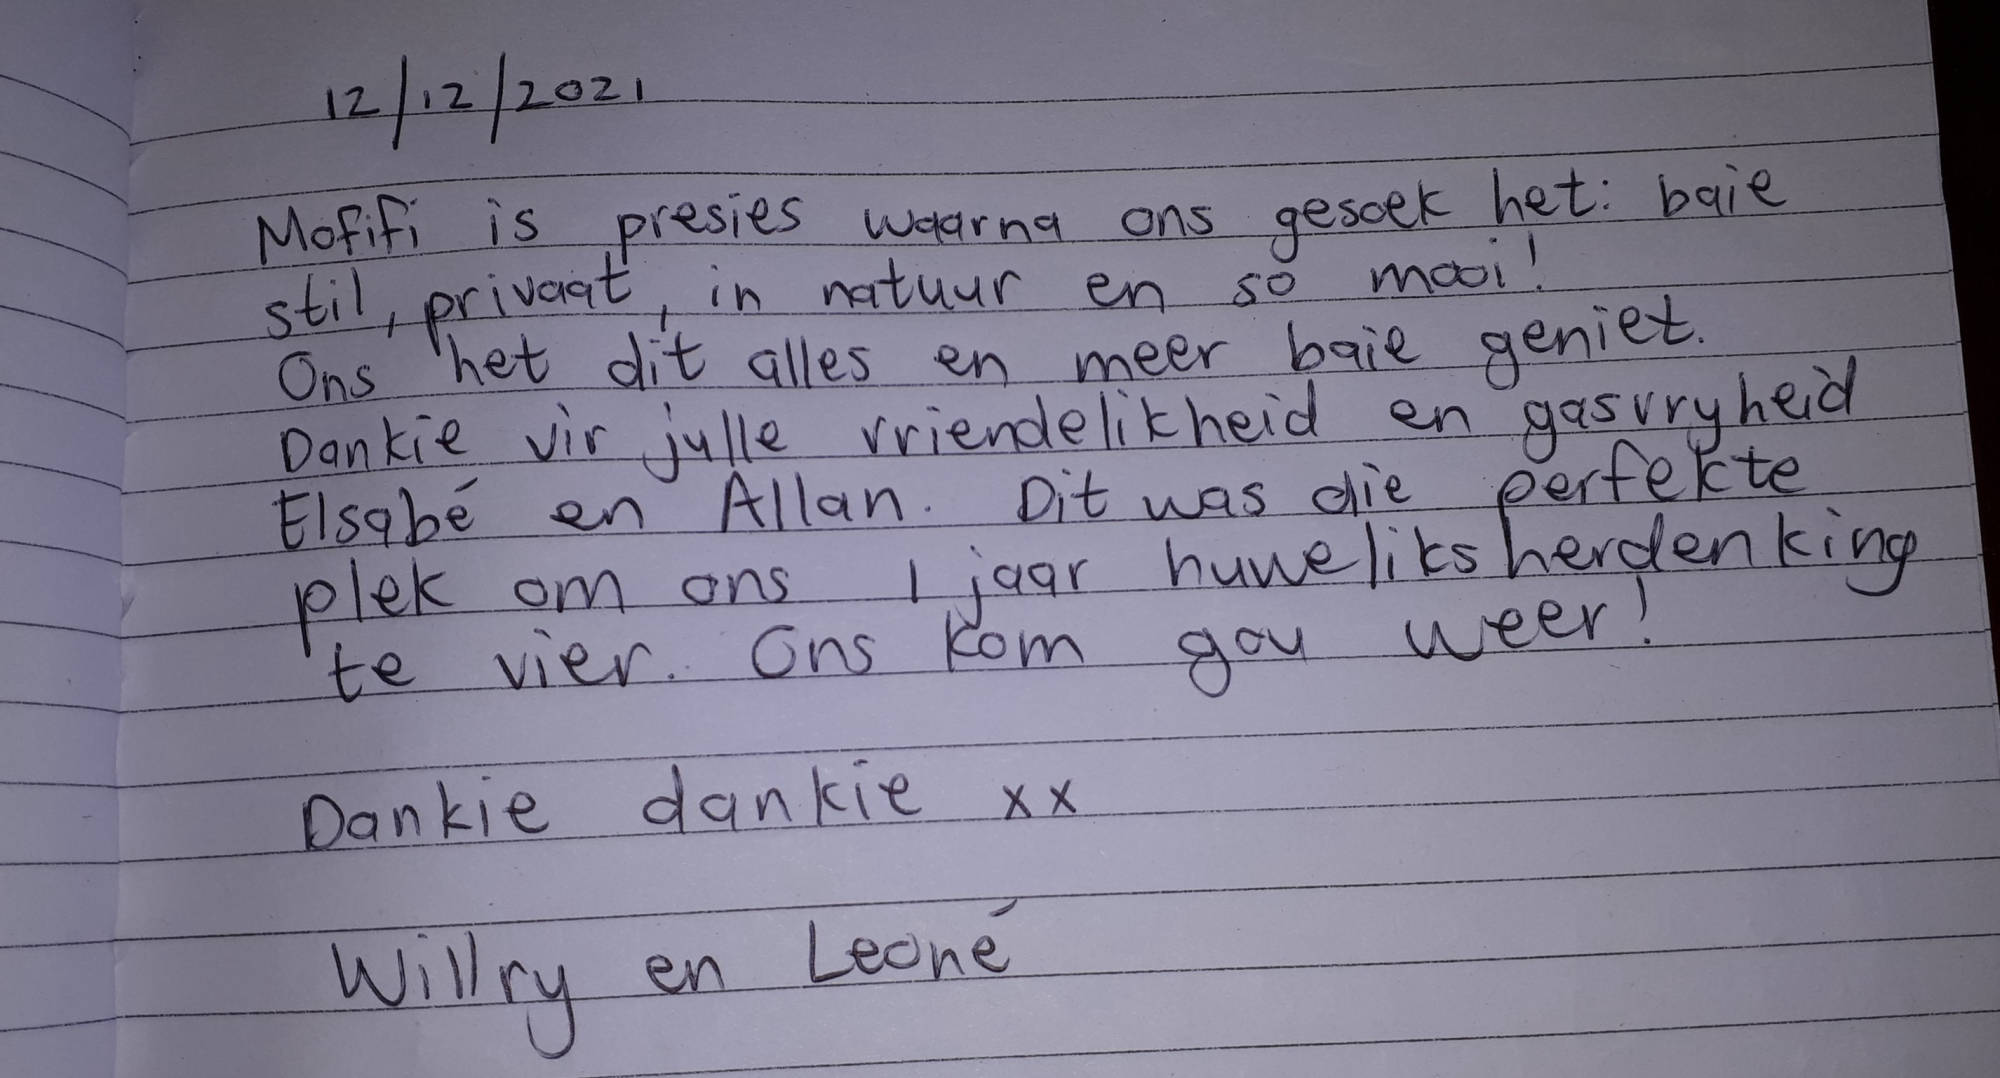 12/12/2021
Mofifi is presies waarna ons gesoek het: baie
stil, privaat, in natuur en so mooi!
Ons het dit alles en meer baie geniet.
Dankie vir julle vriendelikheid en gasvryheid
Elsabé en Allan. Dit was die perfekte
plek om ons 1 jaar huweliksherdenking
te vier. Ons kom gou weer!
Dankie dankie xx
Willry en Leoné